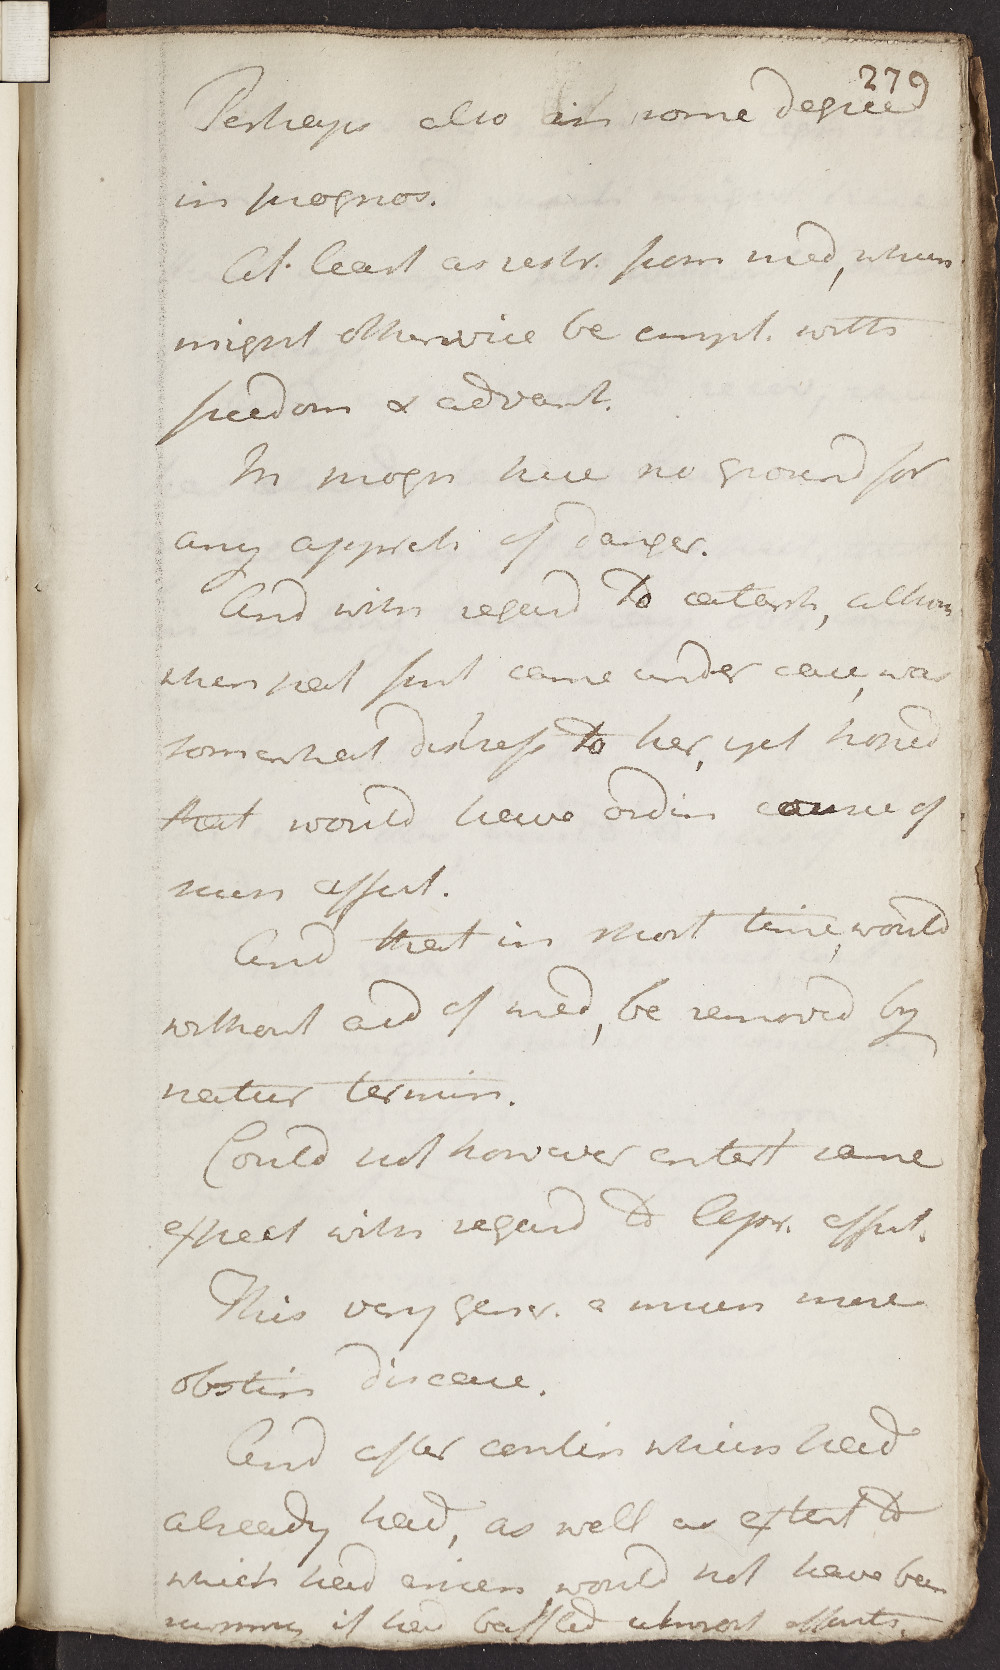 279
Perhaps also in some degree
in prognos.
At least as restr. from med, which
might otherwise be empl. with
freedom & advant.
In progn here no ground for
any appreh of danger.
And with regard to catarrh, altho
when pat first came under care, was
somewhat distress to her, yet hoped
that would have ordin course of
such affect.
And that in short time, would
without aid of med, be removed by
natur termin.
Could not however entert same
expect with regard to lepr. affect.
This very gener. a much more
obstin disease.
And after contin which had
already had, as well as extent to
which had arisen would not have been
surpris if had baffled utmost efforts.